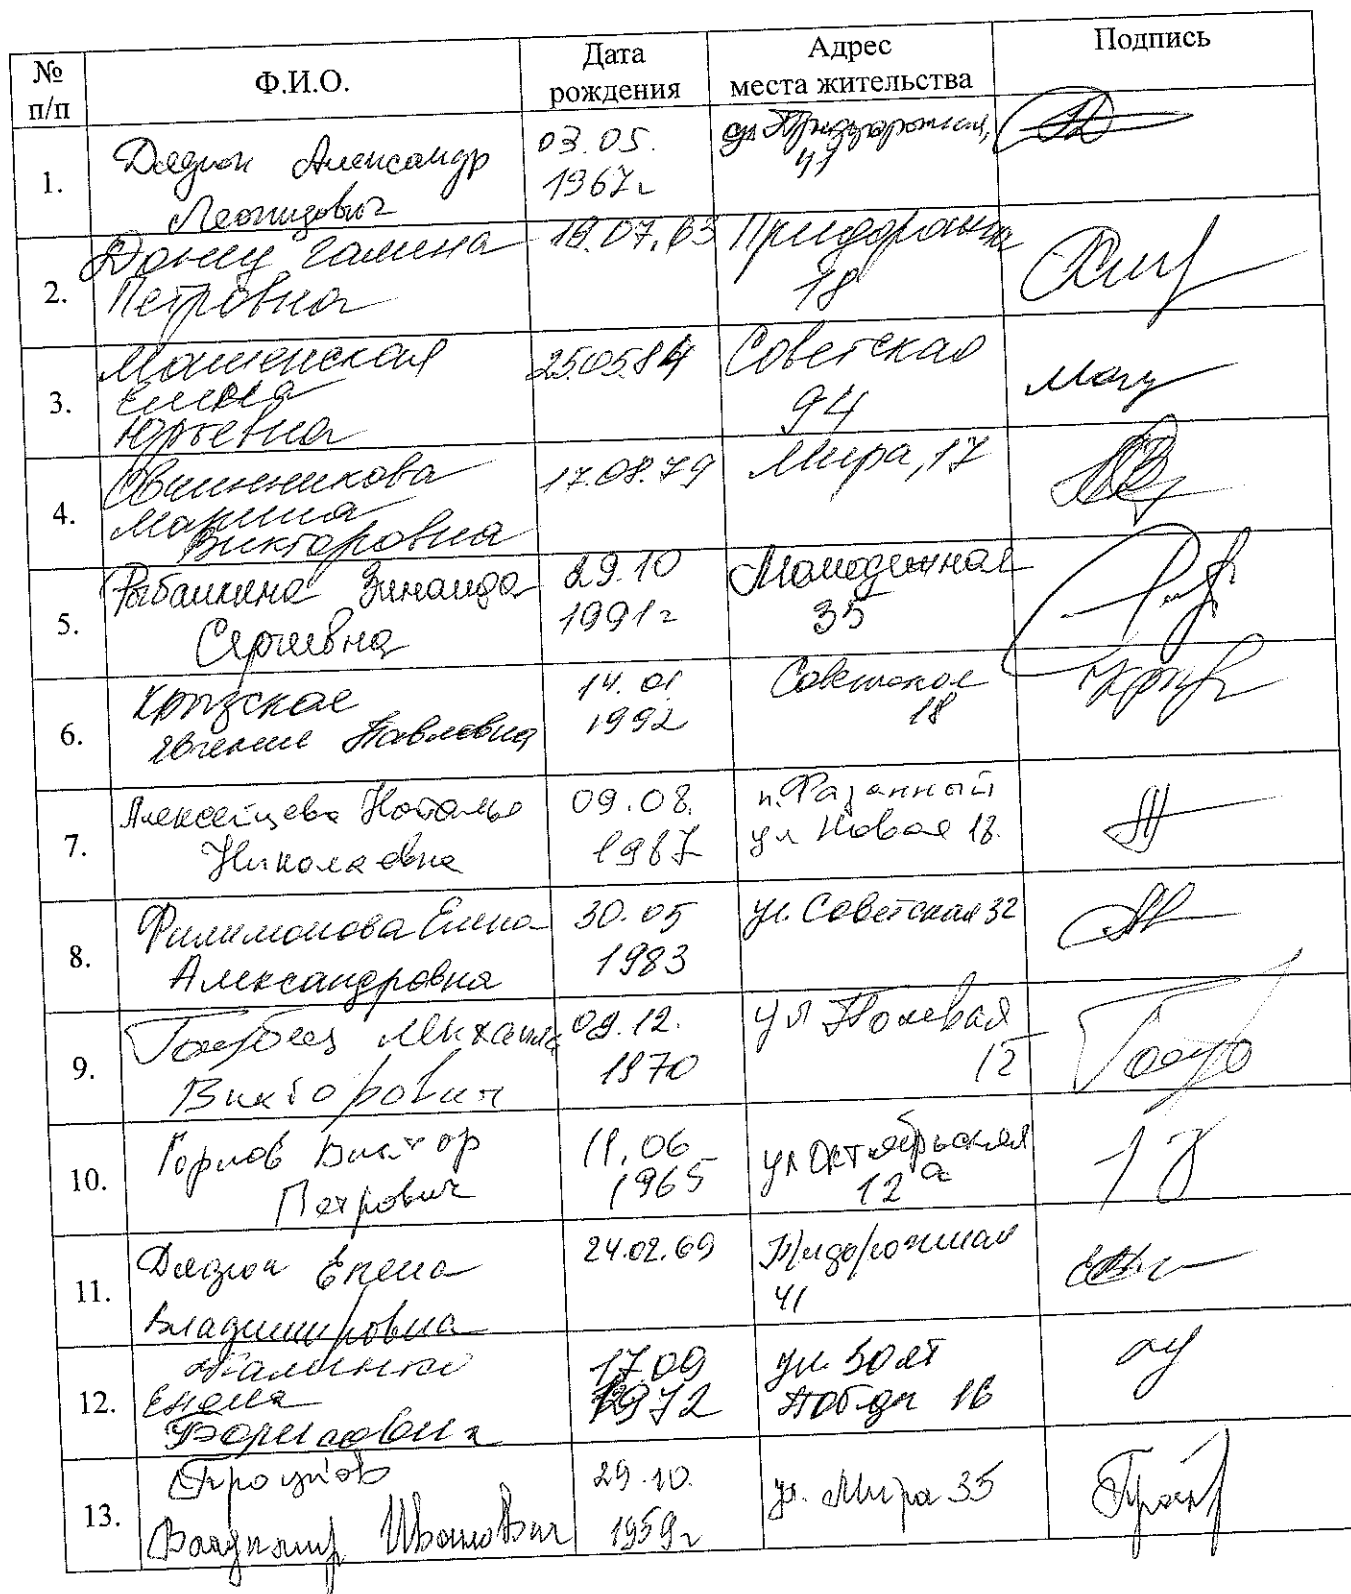 № п/п Ф.И.О. Дата рождения Адрес места жительства Подпись
1. Дядюн Александр Леонидович 03.05. 1967г ул Придорожная, 41
2. Галина Петровна 18.07.63 Придорожная 18
3. Юрьевна 25.05.84 Советская 94
4. Овчинникова Марина Викторовна 17.08.79 Мира, 17
5. Зинаида Сергеевна 29.10 1991г Молодежная 35
6. Евгения Павловна 14.01 1992 Советская 18
7. Алексейцева Наталья Николаевна 09.08. 1987 п. Фазанный ул Новая 18.
8. Филимонова Елена Александровна 30.05 1983 ул. Советская 32
9. Михаил Викторович 09.12. 1970 ул Полевая 15
10. Горлов Виктор Петрович 11.06 1965 ул Октябрьская 12а
11. Дядюн Елена Владимировна 24.02.69 Придорожная 41
12. Елена Борисовна 17.09 1972 ул. 50 лет Победы 16
13. Владимир Иванович 29.10. 1959г ул. Мира 35